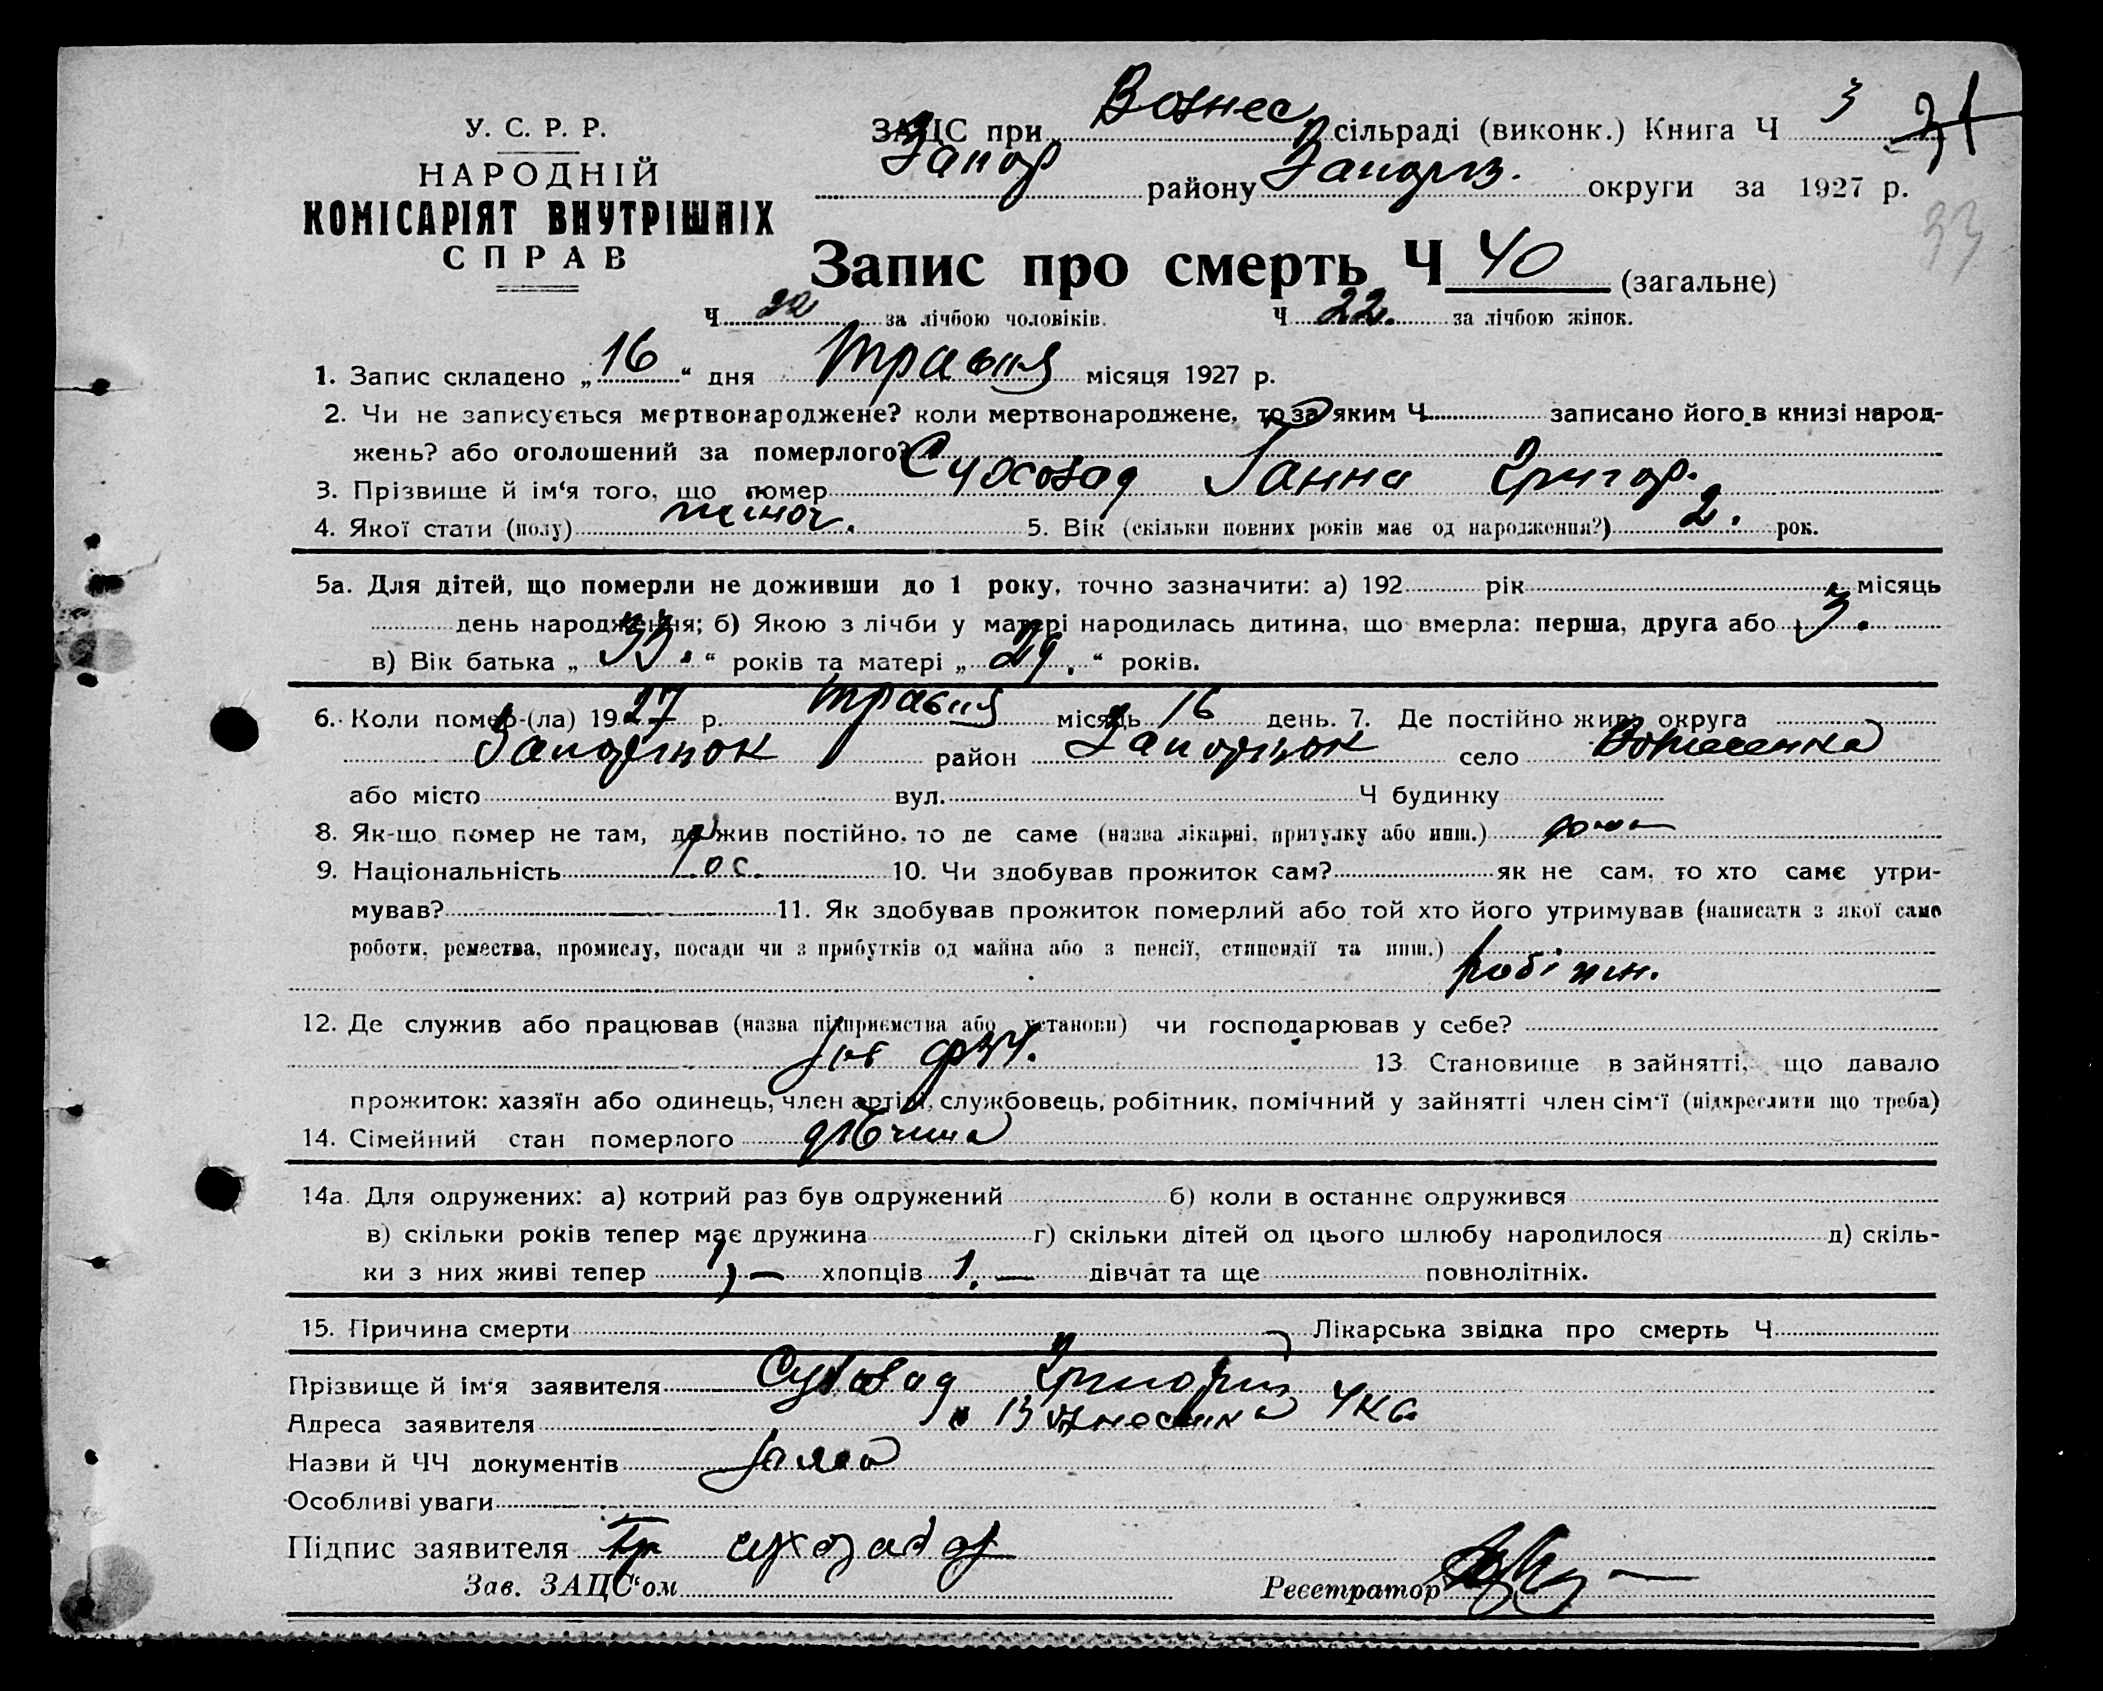 У. С. Р. Р.
НАРОДНІЙ
КОМІСАРІЯТ ВНУТРІШНІХ
СПРАВ
ЗАЦС при Вознес. сільраді (виконк.) Книга Ч 3
Запор району Запоріз. округи за 1927 р.
33
Запис про смерть Ч 40 (загальне)
Ч за лічбою чоловіків. Ч 22. за лічбою жінок.
1. Запис складено „16“ дня травня місяця 1927 р.
2. Чи не записується мертвонароджене? коли мертвонароджене, то за яким Ч записано його в книзі народ-
жень? або оголошений за померлого?
3. Прізвище й ім'я того, що помер Сухозад Ганна Григор.
4. Якої стати (полу) жіноч. 5. Вік (скільки повних років має од народження?) 2. рок.
5а. Для дітей, що померли не доживши до 1 року, точно зазначити: а) 192 рік місяць
день народження; б) Якою з лічби у матері народилась дитина, що вмерла: перша, друга або 3.
в) Вік батька „33.“ років та матері „29.“ років.
6. Коли помер-(ла) 1927 р. травня місяць 16 день. 7. Де постійно жив: округа
Запоріжок район Запоріжок село Вознесенка
або місто вул. Ч будинку
8. Як-що помер не там, де жив постійно, то де саме (назва лікарні, притулку або инш.) дома
9. Національність Рос. 10. Чи здобував прожиток сам? як не сам, то хто саме утри-
мував? 11. Як здобував прожиток померлий або той хто його утримував (написати з якої саме
роботи, ремества, промислу, посади чи з прибутків од майна або з пенсії, стипендії та инш.)
робітн.
12. Де служив або працював (назва підприємства або установи) чи господарював у себе?
13 Становище в зайнятті, що давало
прожиток: хазяїн або одинець, член артілі, службовець, робітник, помічний у зайнятті член сім'ї (підкреслити що треба)
14. Сімейний стан померлого дівчина
14а. Для одружених: а) котрий раз був одружений б) коли в останнє одружився
в) скільки років тепер має дружина г) скільки дітей од цього шлюбу народилося д) скіль-
ки з них живі тепер 1, — хлопців 1. — дівчат та ще повнолітніх.
15. Причина смерти Лікарська звідка про смерть Ч
Прізвище й ім'я заявителя Сухозад Григорий
Адреса заявителя с Вознесенка
Назви й ЧЧ документів
Особливі уваги
Підпис заявителя Гр сухозад
Зав. ЗАЦС'ом Реєстратор